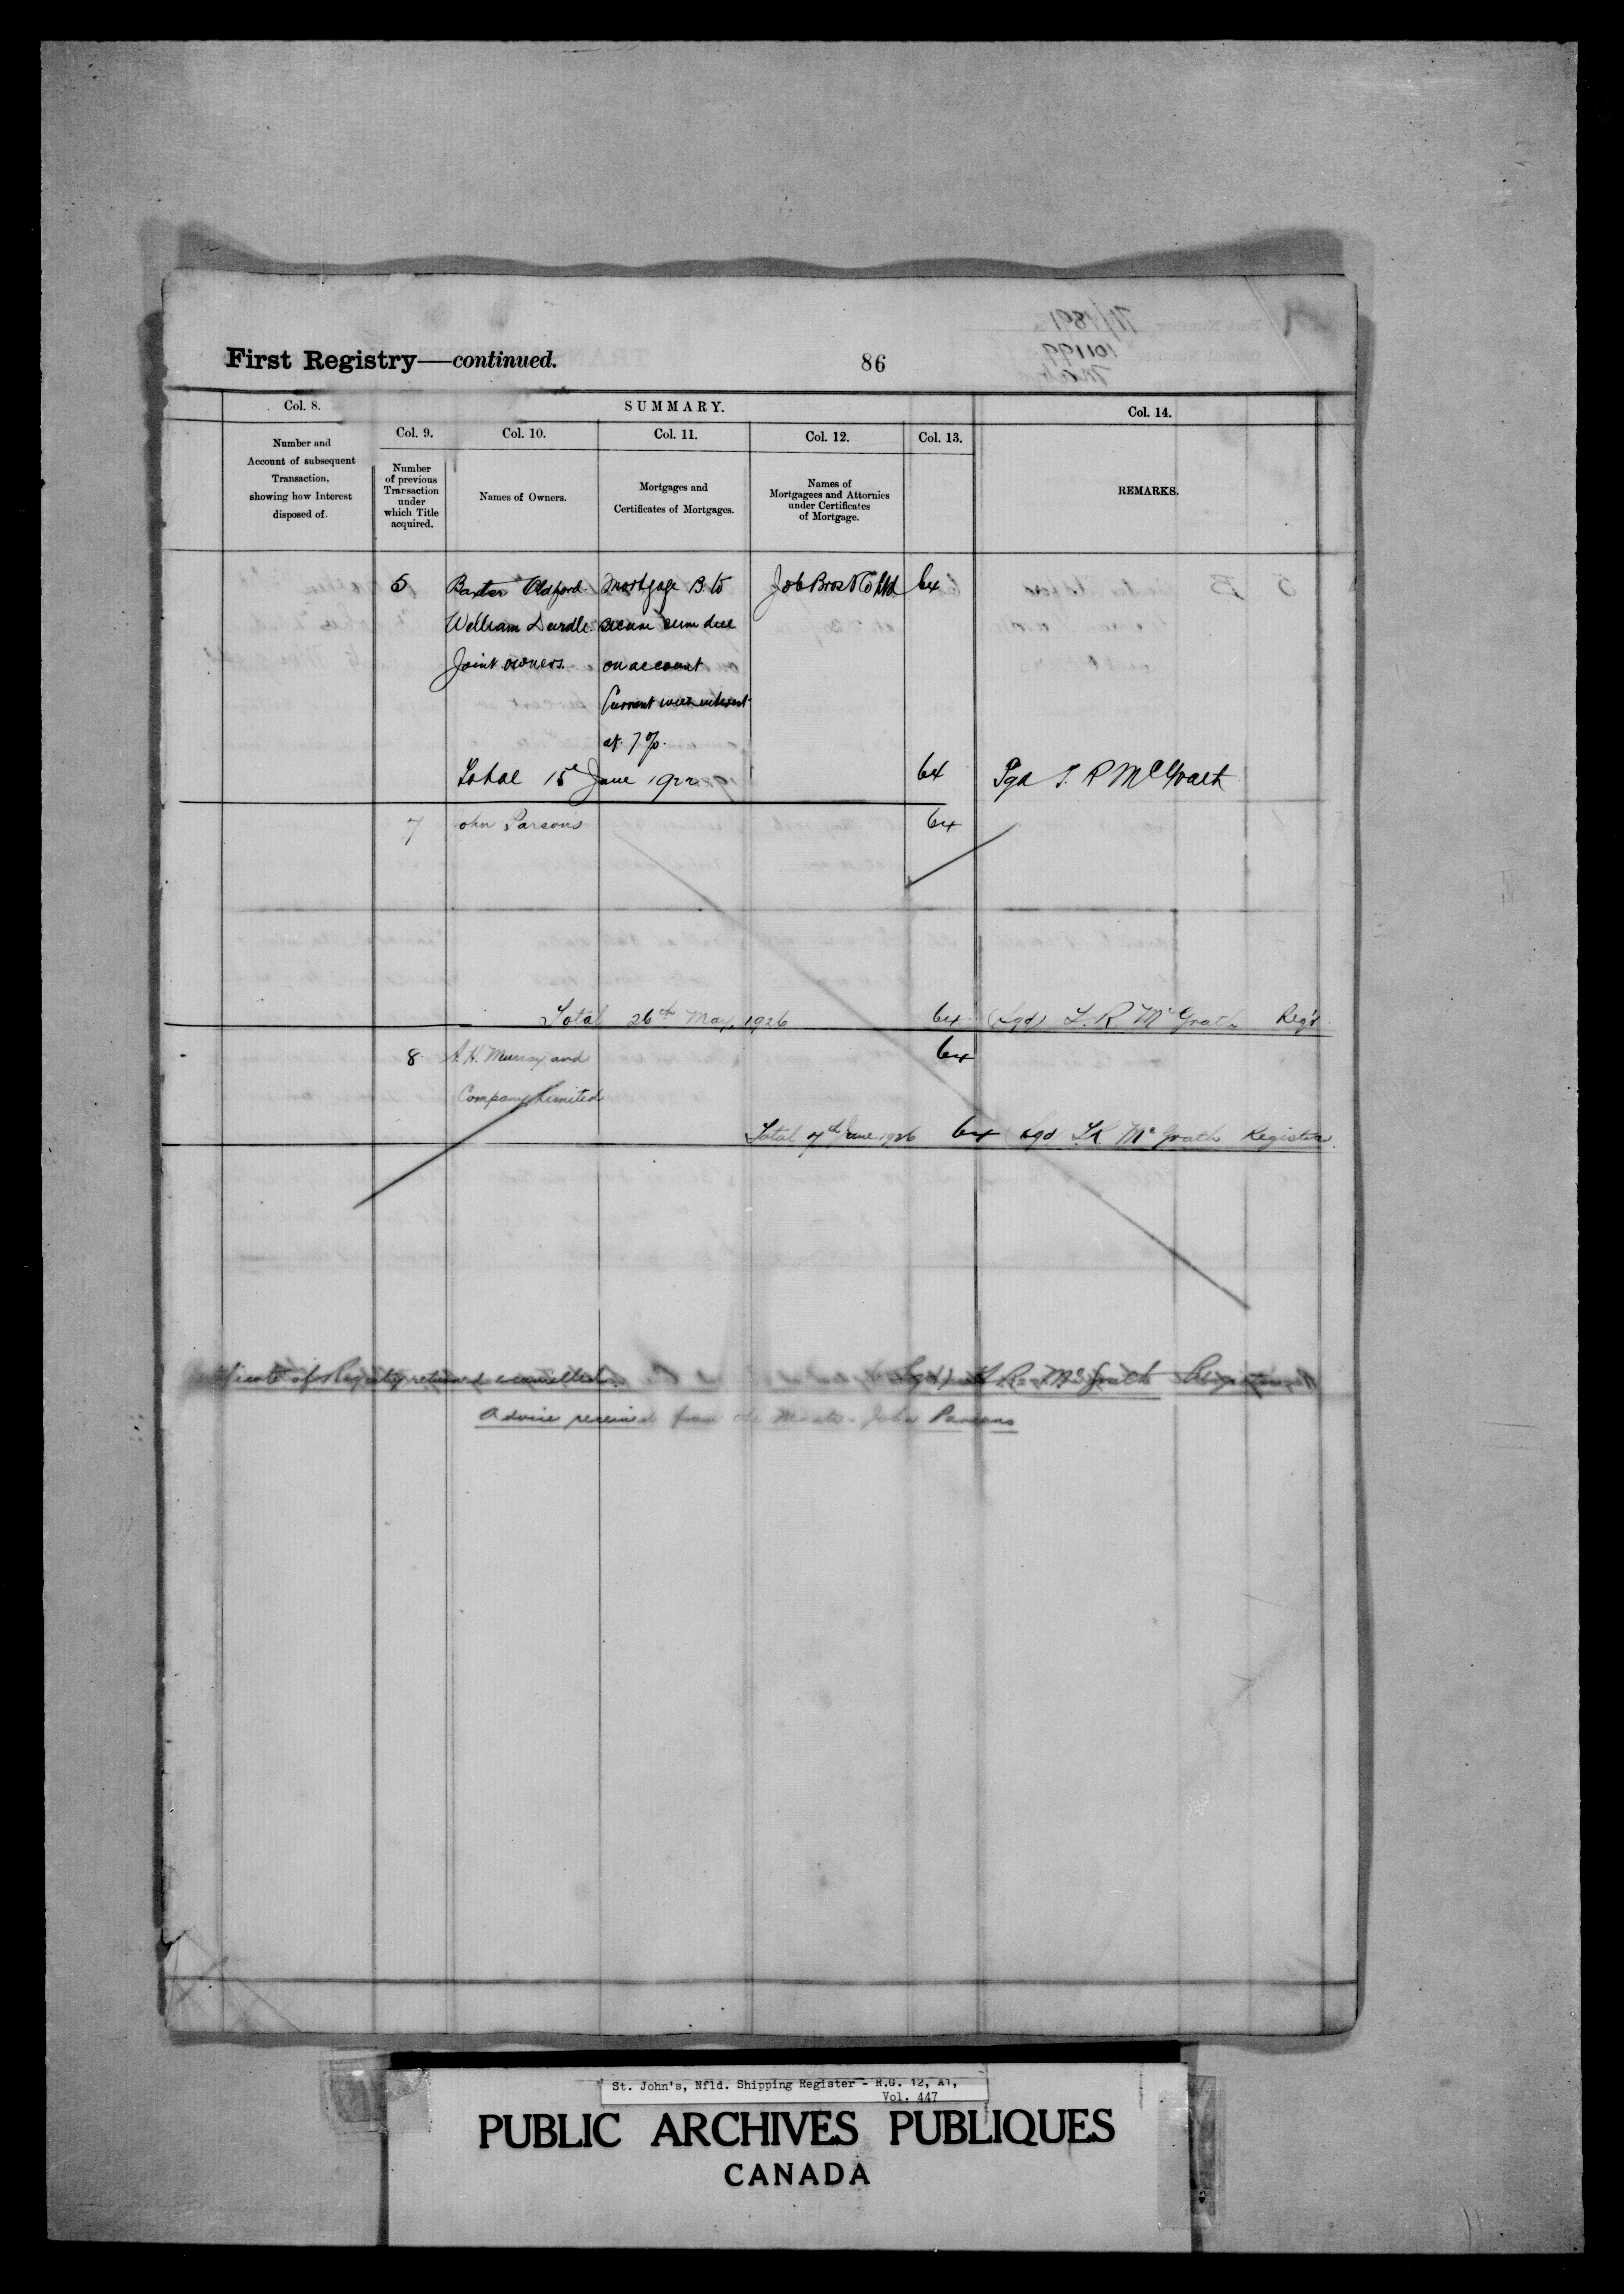 First Registry—continued.
86
Col. 8.
SUMMARY.
Col. 14.
Col. 9.
Col. 10.
Col. 11.
Col. 12.
Col. 13.
Number and
Account of subsequent
Transaction,
showing how Interest
disposed of.
Number
of previous
Transaction
under
which Title
acquired.
Names of Owners.
Mortgages and
Certificates of Mortgages.
Names of
Mortgagees and Attornies
under Certificates
of Mortgage.
REMARKS.
5 Baxter Oldford Mortgage B. to Job Bros & Co Ltd 64
William Durdle secure sum due
Joint owners. on account
Current with interest
at 7%.
Total 15 June 1922 64 Sgd McGrath
7 John Parsons 64
Total 26th May, 1926 64 (Sgd) L. R. McGrath Reg'r
8 A. H. Murray and 64
Company Limited
Total 7th June 1926 64 Sgd L.R. McGrath Registrar
Certificate of Registry returned & cancelled. (Sgd) L. R. McGrath Registrar
Advice received from the Master - John Parsons
St. John's, Nfld. Shipping Register - R.G. 12, A1,
Vol. 447
PUBLIC ARCHIVES PUBLIQUES
CANADA